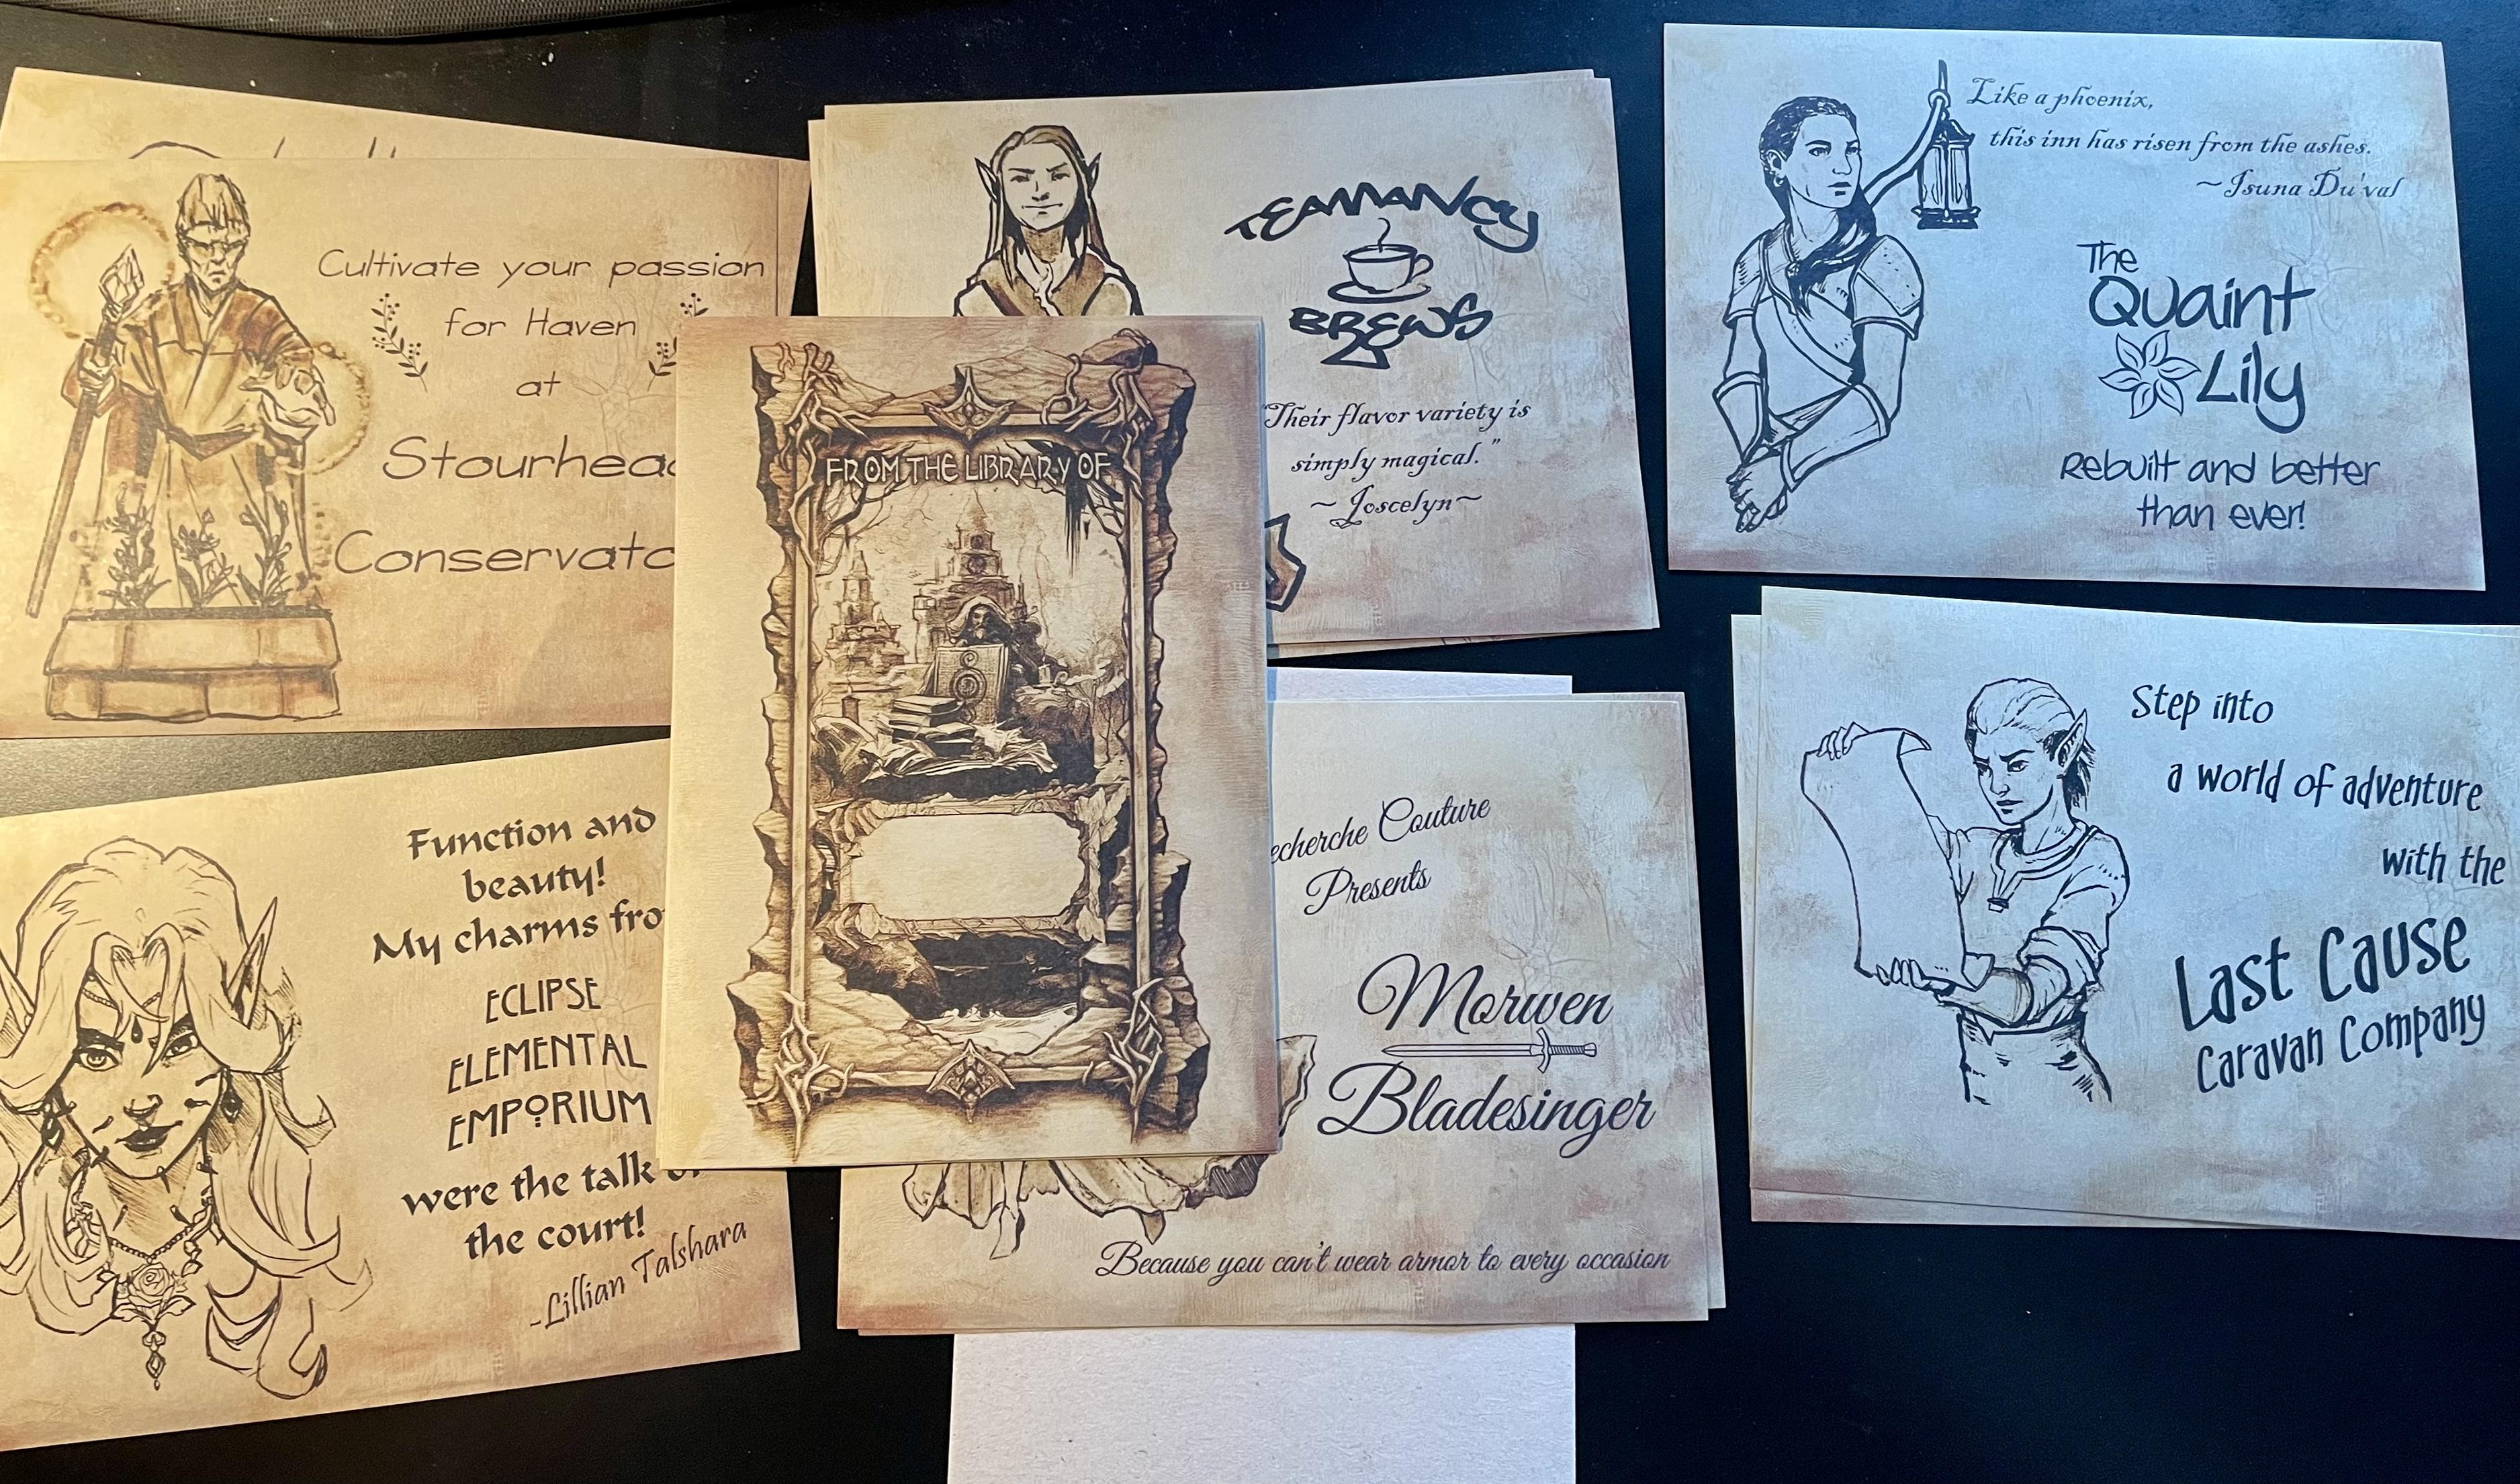 Cultivate your passion
for Haven
at
TEAMANCY
BREWS
"Their flavor variety is
simply magical."
~ Joscelyn ~
Like a phoenix,
this inn has risen from the ashes.
~ Isuna Du'val
The
Quaint
Lily
Rebuilt and better
than ever!
FROM THE LIBRARY OF
Function and
beauty!
My charms
ECLIPSE
ELEMENTAL
EMPORIUM
were the talk
the court!
-Lillian Talshara
Couture
Presents
Morwen
Bladesinger
Because you can't wear armor to every occasion
Step into
a world of adventure
with the
Last Cause
Caravan Company